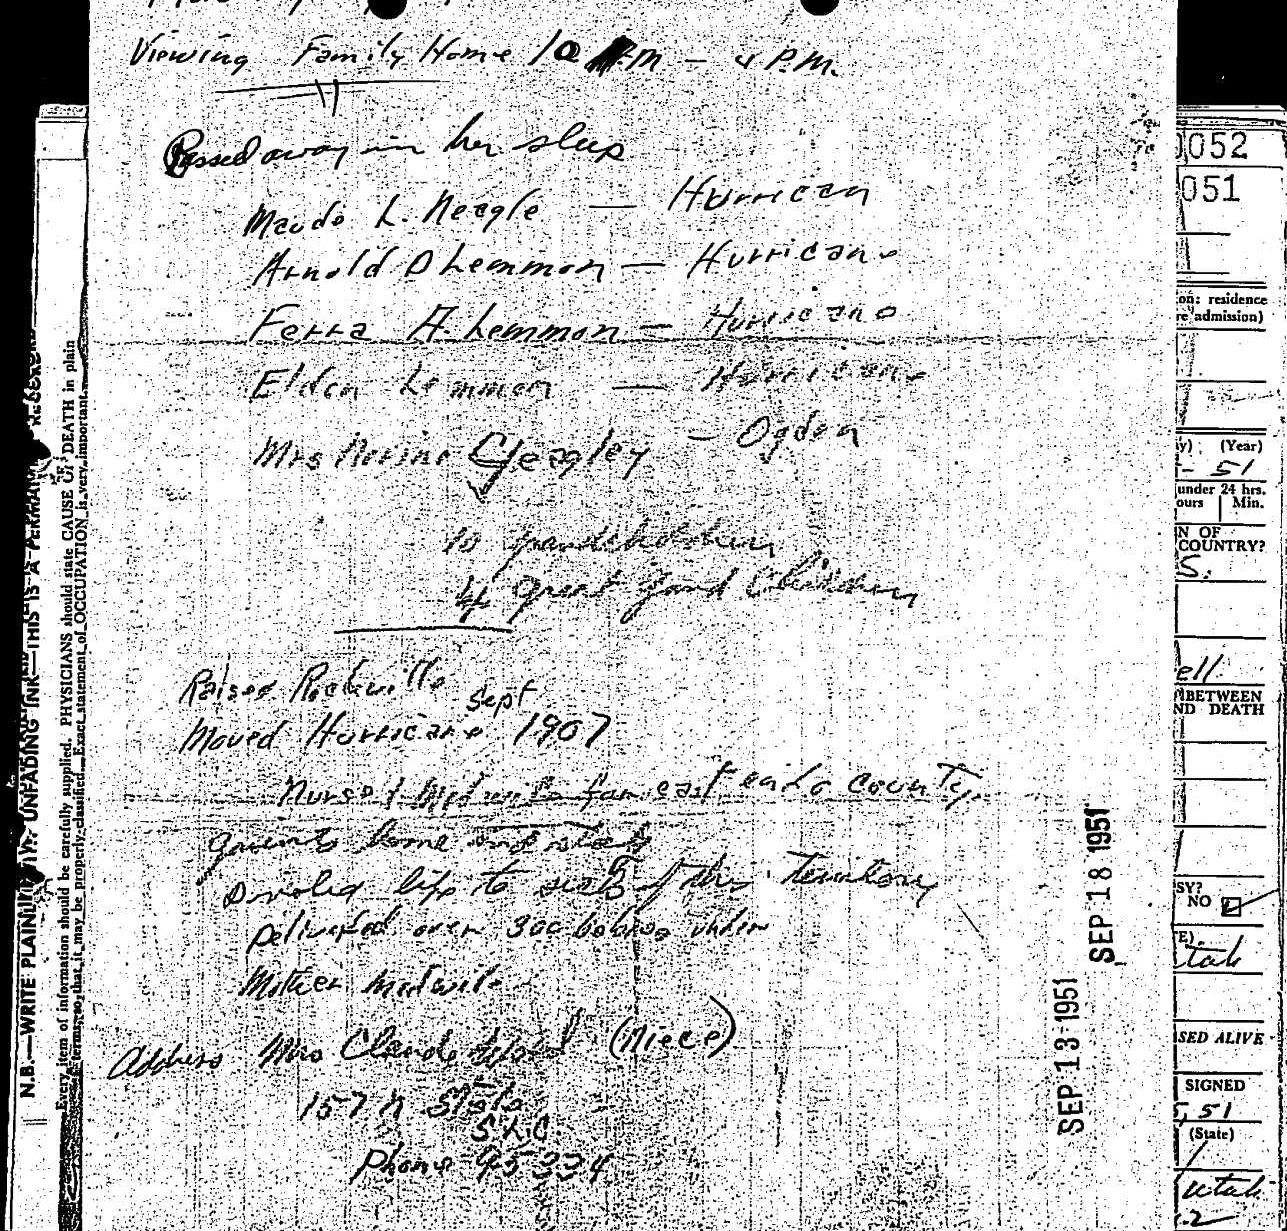 Viewing Family Home 10 A.M - 4 P.M.
Passed away in her sleep
Maude L. Neagle — Hurrican
Arnold D Lemmon — Hurricane
Ferra A. Lemmon — Hurricane
Eldon Lemmon — Hurricane
Mrs Norine Yeagley — Ogden
10 grandchildren
4 great grand Children
Raised Rockville
Sept
Moved Hurricane 1907
Nurse & Midwife for east end county
home
Devoted life to of this Territory
Delivered over 300 babies under
Mother Midwife
Address Mrs Claude (Niece)
157 N State
S.L.C
Phone 95334
SEP 18 1951
SEP 13 1951
N.B.—WRITE PLAINLY WITH UNFADING INK—THIS IS A PERMANENT RECORD
Every item of information should be carefully supplied. PHYSICIANS should state CAUSE OF DEATH in plain
terms, so that it may be properly classified. Exact statement of OCCUPATION is very important.
052
051
on: residence
re admission)
y) (Year)
- 51
under 24 hrs.
ours Min.
N OF
COUNTRY?
S.
ell
BETWEEN
ND DEATH
SY?
NO
E)
tah
SED ALIVE
SIGNED
5, 51
(State)
Utah
2